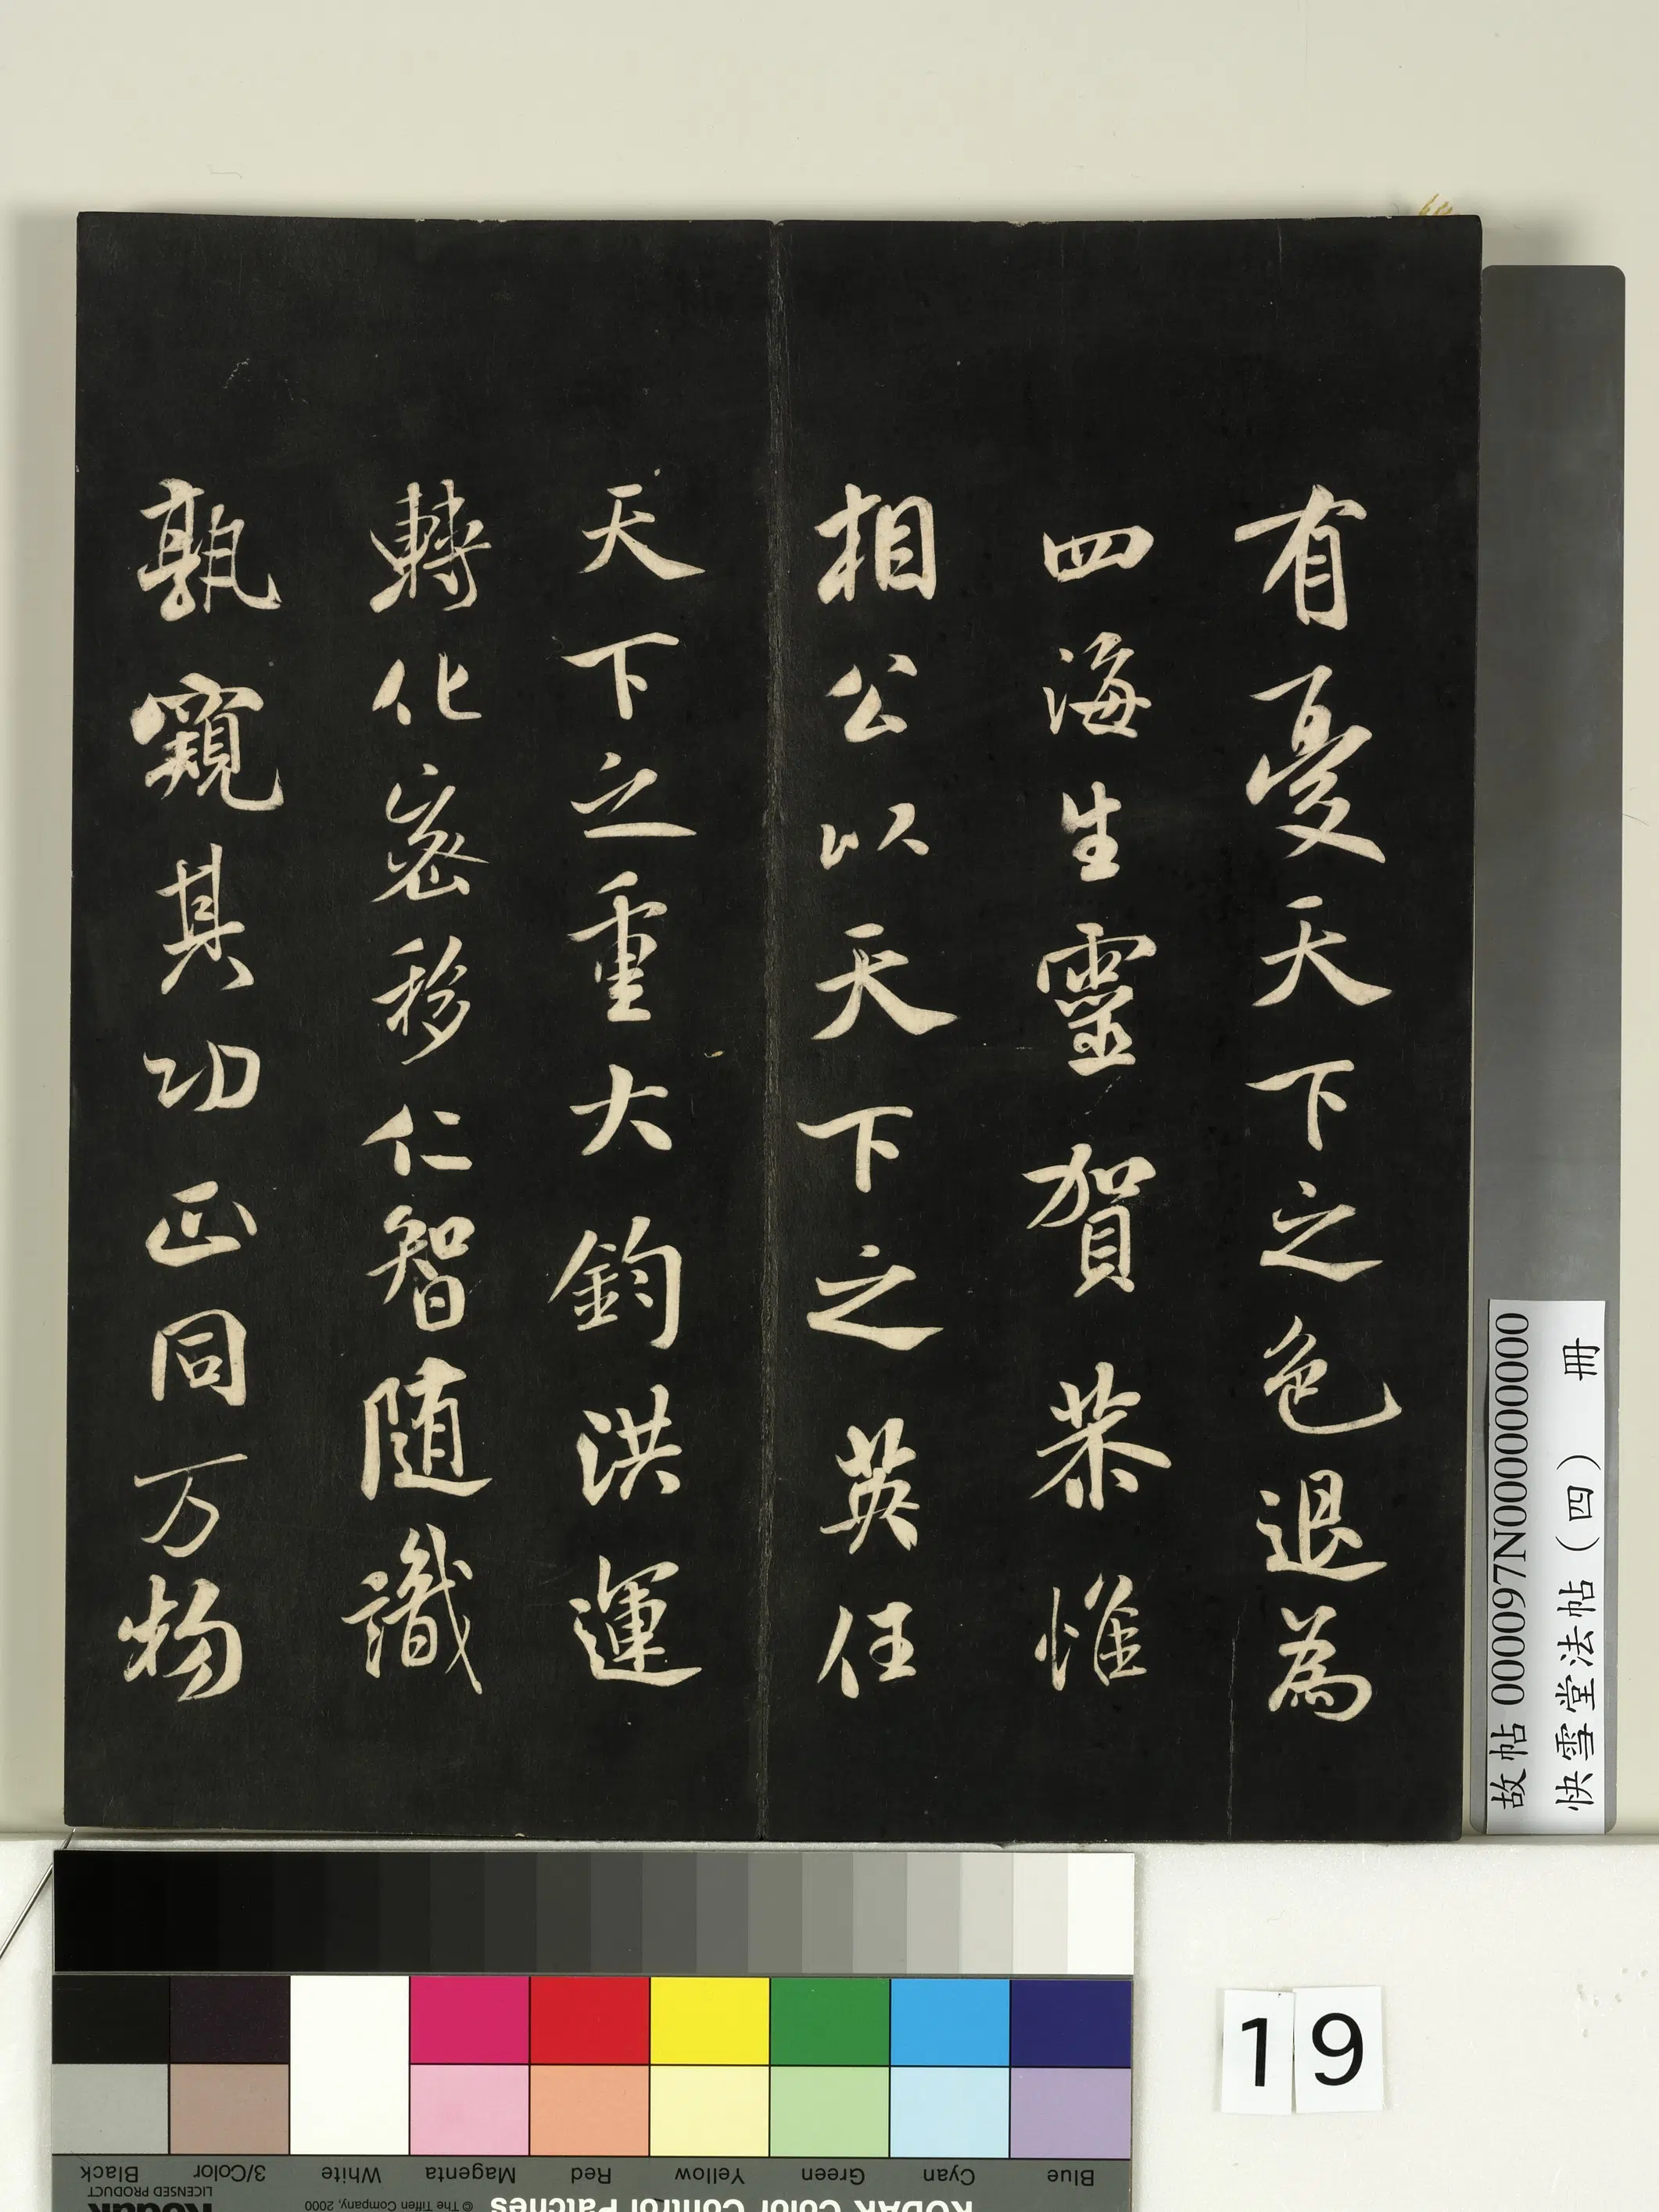 有憂天下之色退為
四海生靈賀恭惟
相公以天下之英任
天下之重大鈞洪運
轉化密移仁智随識
孰窺其功正同万物
故帖 000097N000000000000
快雪堂法帖（四） 冊
19
Blue
Cyan
Green
Yellow
Red
Magenta
White
3/Color
Black
KODAK Color Control Patches
© The Tiffen Company, 2000
Kodak
LICENSED PRODUCT